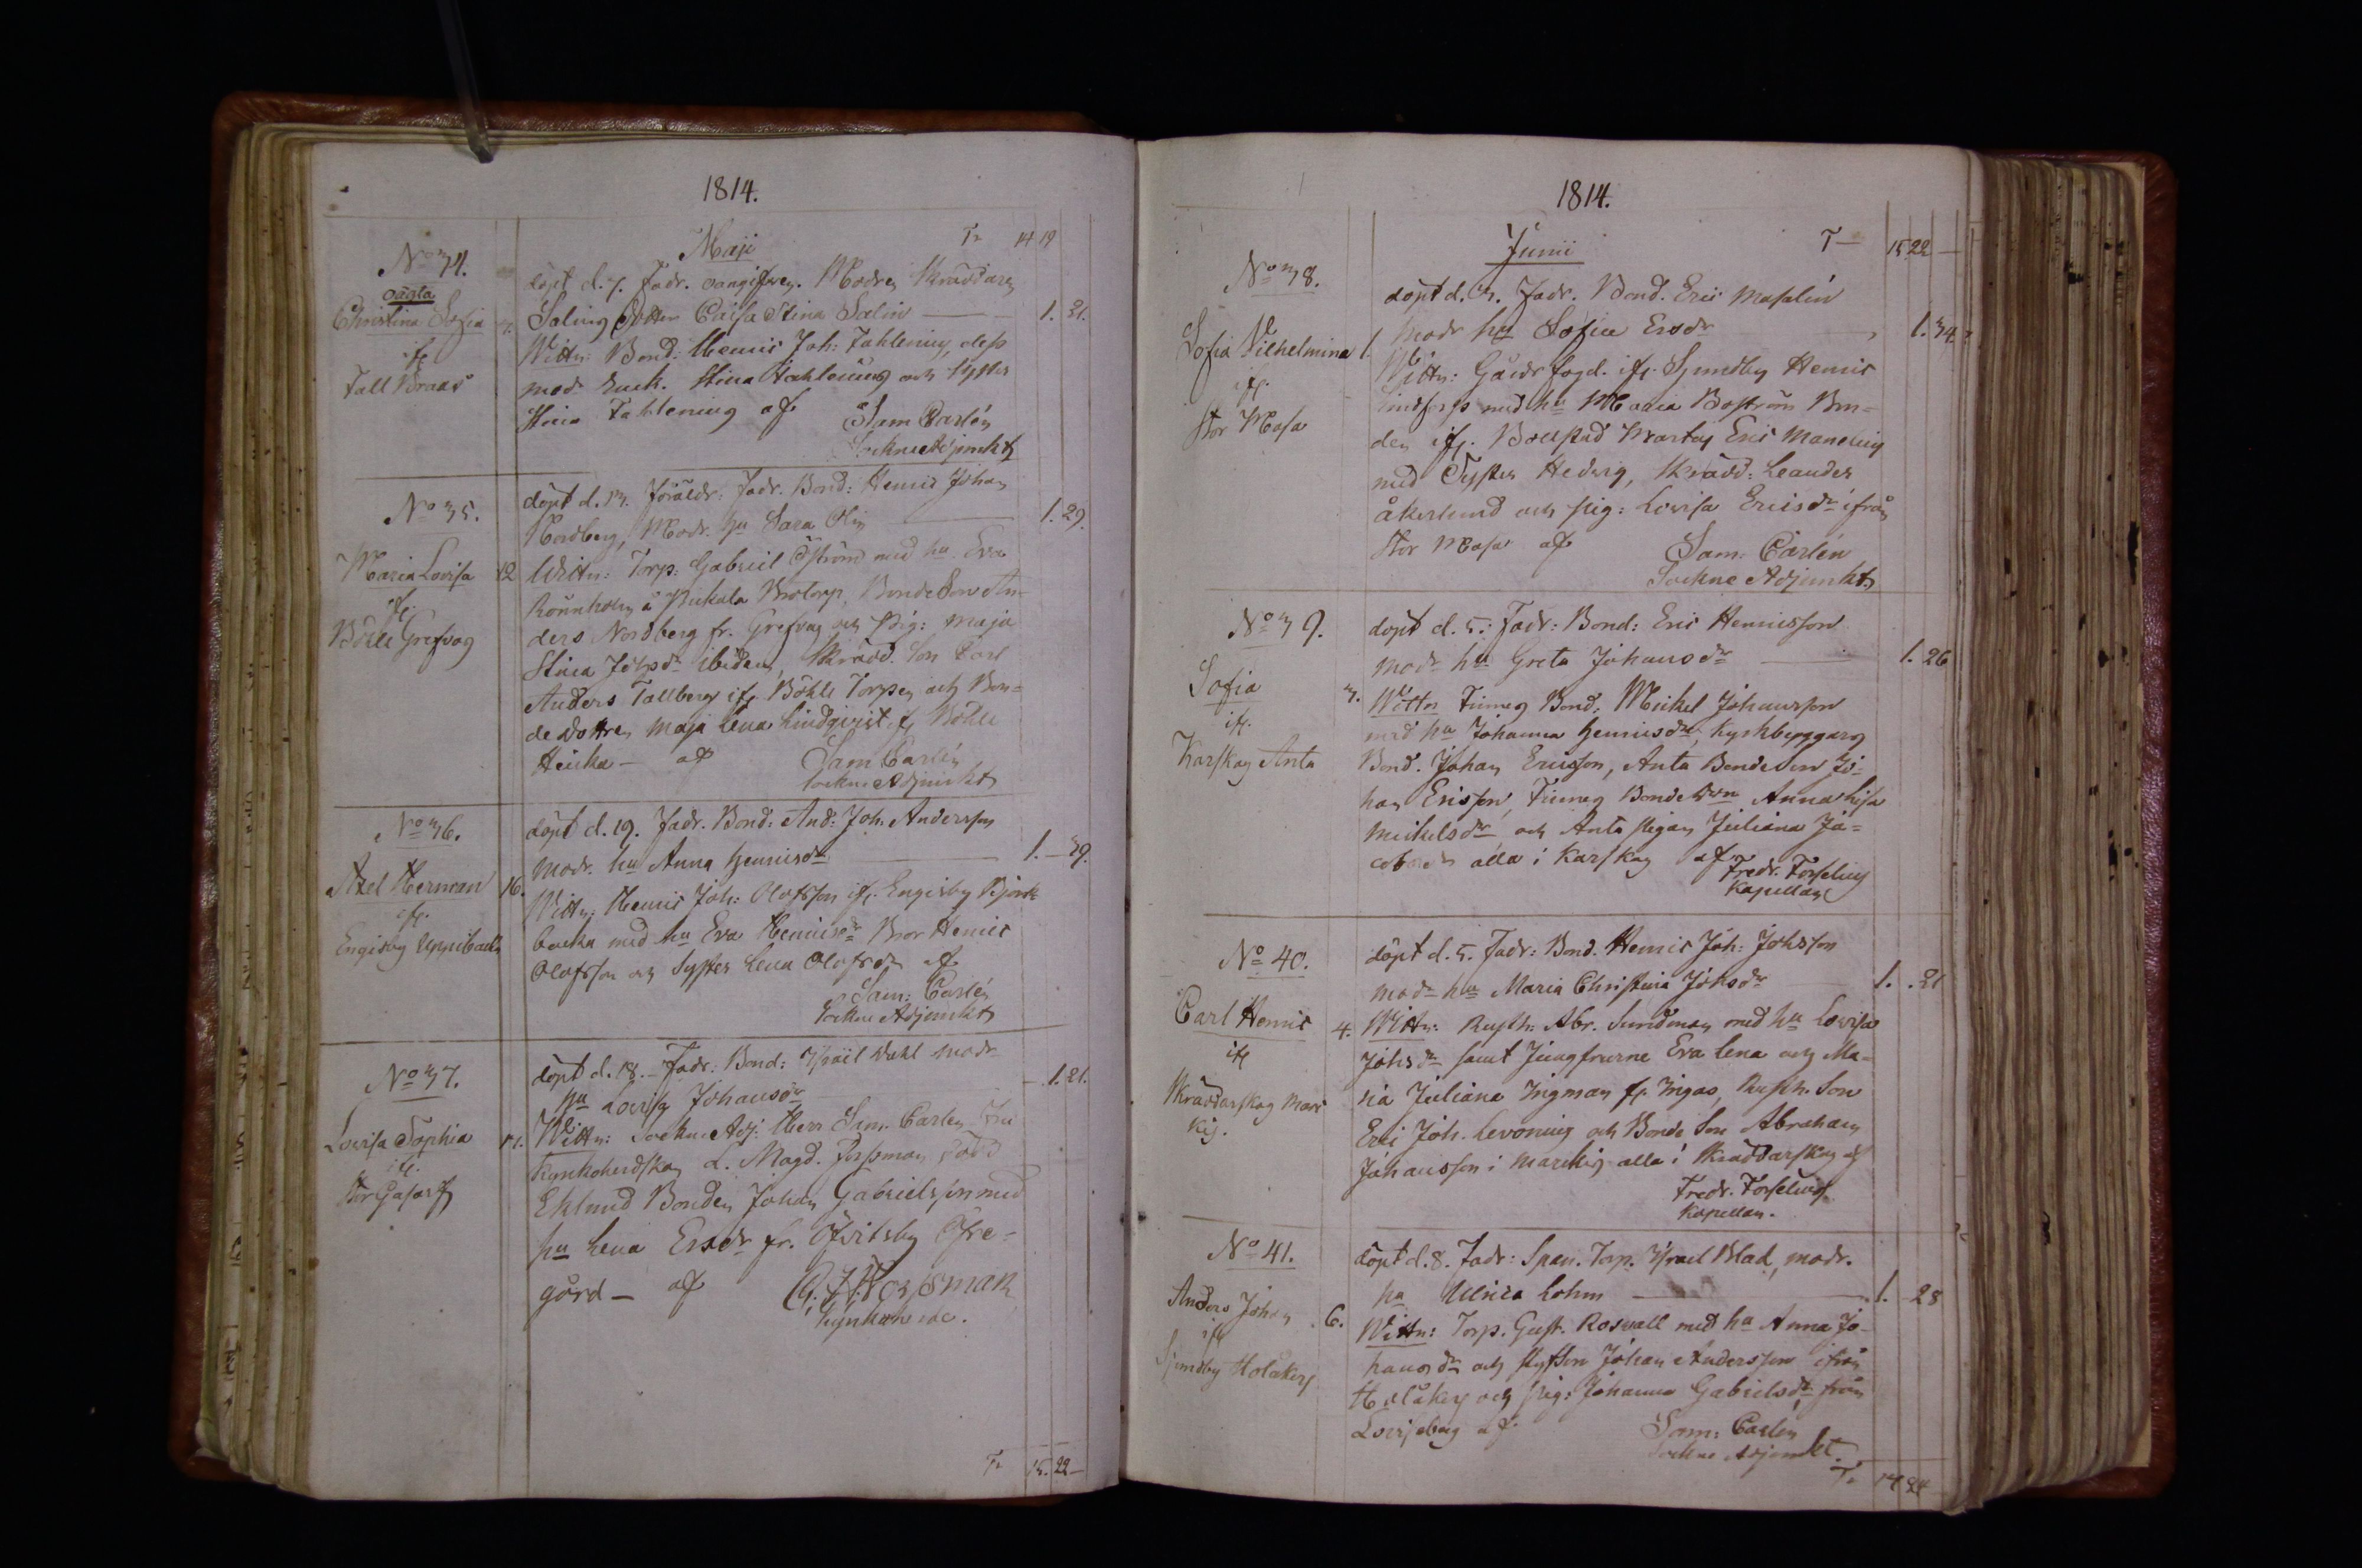 1814.
Maji
Tr 14 19
No 34.
oägta
Christina Sofia
ifr
Tall Braas
döpt d. 7. Fadr. oangifven. Modren Skräddaren
Salins Dotter Caisa Stina Salin — 1. 31.
Wittn: Bond: Henric Joh: Tahlening, dess
mod. Enk. Stina Tahlening och Syster
Stina Tahlening af
Sam Carlén
Sockne Adjunkt
No 35.
Maria Lovisa 12
ifr.
Böhle Grefvas
döpt d. 13. Föräldr: Fadr. Bond: Henric Johan
Nordberg, Modr. hu Sara Olin — 1. 29.
Wittn: Torp: Gabriel Öström med hu Eva
Rönnholm å Pickala Brotorp, Bonde Son An-
ders Nordberg fr. Grefvas och Pig: Maja
Stina Johsdr ibidem, Skrädd. Son Carl
Anders Tallberg ifr. Böhle Torpen och Bon-
de Dottren Maja Lena Lindqvist ifr Böhle
Heicka — af
Sam Carlén
Sockne Adjunkt
No 36.
Axel Herman 16.
ifr.
Engisby Uppibacka
döpt d. 19. Fadr. Bond: And: Joh: Andersson
Modr. hu Anna Henricsdr — 1. — 39.
Wittn: Henric Joh: Olofsson ifr. Engisby Björk-
backa med hu Eva Henricsdr Bror Henric
Olofsson och Syster Lena Olofsdr af
Sam: Carlén
Sockne Adjunkt
No 37.
Lovisa Sophia 17.
ifr.
Stor Gasarf
döpt d. 18. Fadr: Bond: Israël Dahl modr
hu Lovisa Johansdr — 1. 21.
Wittn: Sockne Adj: Herr Sam. Carlén Fru
Kyrkoherdskan L. Magd. Forssman född
Eklund Bonden Johan Gabrielsson med
hu Lena Ersdr fr. Öfvitsby Öfre-
gård — af
G. J. Forssman
Kyrkoherde.
Tr 15. 22 —
1814.
Junii
T — 15 22 —
No 38.
Sofia Vilhelmina 1.
ifr.
Stor Masa
döpt d. 3. Fadr. Bond. Eric Masalin
modr hu Sofia Ersdr — 1. 34
Wittn: Gårds fogd. ifr. Sjundby Henric
Lindfors med hu Maria Boström Bon-
den ifr. Bollstad Mårtens Eric Manelius
med Syster Hedvig, Skrädd: Leander
Åkerlund och pig: Lovisa Ericsdr ifrån
Stor Masa af
Sam: Carlén
Sockne Adjunkt
No 39.
Sofia 3.
ifr.
Karskog Anta
döpt d. 5: Fadr: Bond: Eric Henricsson
modr hu Greta Johansdr — 1. 26
Wittn Finnes Bond: Mickel Johansson
med hu Johanna Henricsdr, Kyrkbyggars
Bond. Johan Ericsson, Anta Bonde Son Jo-
han Ericsson, Finnes Bonde Drn Anna Lisa
Mickelsdr och Anta pigan Juliana Ja-
cobsdr alla i Karskog af
Fredr. Forselius
Kapellan
No 40.
Carl Henric 4.
ifr
Skräddarskog Mars
kis.
döpt d. 5. Fadr: Bond. Henric Joh: Johsson
modr hu Maria Christina Johsdr 1. . 21
Wittn: Rusth. Abr. Sundman med hu Lovisa
Johsdr samt Jungfrurne Eva Lena och Ma-
ria Juliana Ingman fr. Ingas, Rusth. Son
Eric Joh. Levonius och Bonde Son Abraham
Johansson i Marckis alla i Skräddarskog af
Fredr. Forselius
Kapellan.
No 41.
Anders Johan 6.
ifr
Sjundby Holåkers
döpt d. 8. Fadr: Span. Torp. Israel Blad, modr.
hu Ulrica Lohm — 1. 28
Wittn: Torp. Gust. Rosvall med hu Anna Jo-
hansdr och Johan Andersson ifrån
Holåker och pig: Johanna Gabrielsdr från
Loviseberg af
Sam: Carlén
Sockne Adjunkt.
Tr 17 24